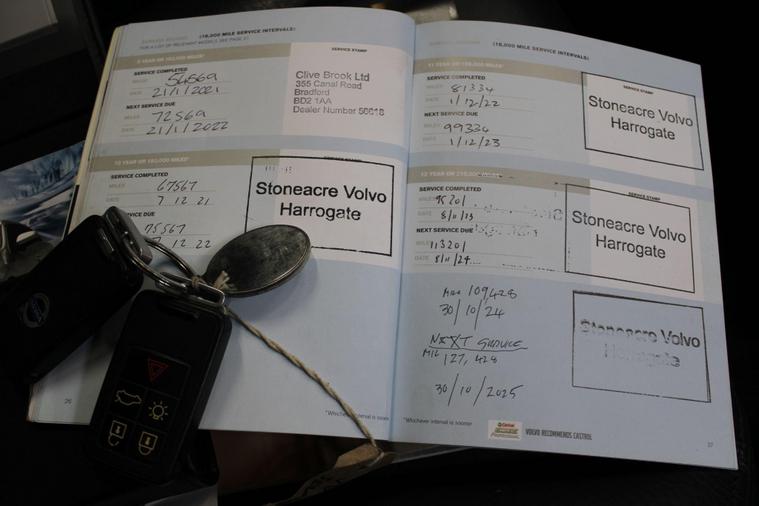 (18,000 MILE SERVICE INTERVALS)
FOR A LIST OF RELEVANT MODELS SEE PAGE 21
SERVICE STAMP
SERVICE COMPLETED
MILES 54569
DATE 21/1/2021
NEXT SERVICE DUE
MILES 72569
DATE 21/1/2022
Clive Brook Ltd
355 Canal Road
Bradford
BD2 1AA
Dealer Number 56618
SERVICE COMPLETED
MILES 67567
7 12 21
DUE
12 22
Stoneacre Volvo
Harrogate
26
*Whichever interval is sooner
(18,000 MILE SERVICE INTERVALS)
SERVICE STAMP
SERVICE COMPLETED
MILES 81334
DATE 1/12/22
NEXT SERVICE DUE
MILES 99334
DATE 1/12/23
Stoneacre Volvo
Harrogate
SERVICE STAMP
SERVICE COMPLETED
MILES 95201
DATE 8/11/23
NEXT SERVICE DUE
MILES 113201
DATE 8/11/24
Stoneacre Volvo
Harrogate
109,428
30/10/24
NEXT SERVICE
127,428
30/10/2025
Stoneacre Volvo
Harrogate
*Whichever interval is sooner
Castrol
VOLVO RECOMMENDS CASTROL
27